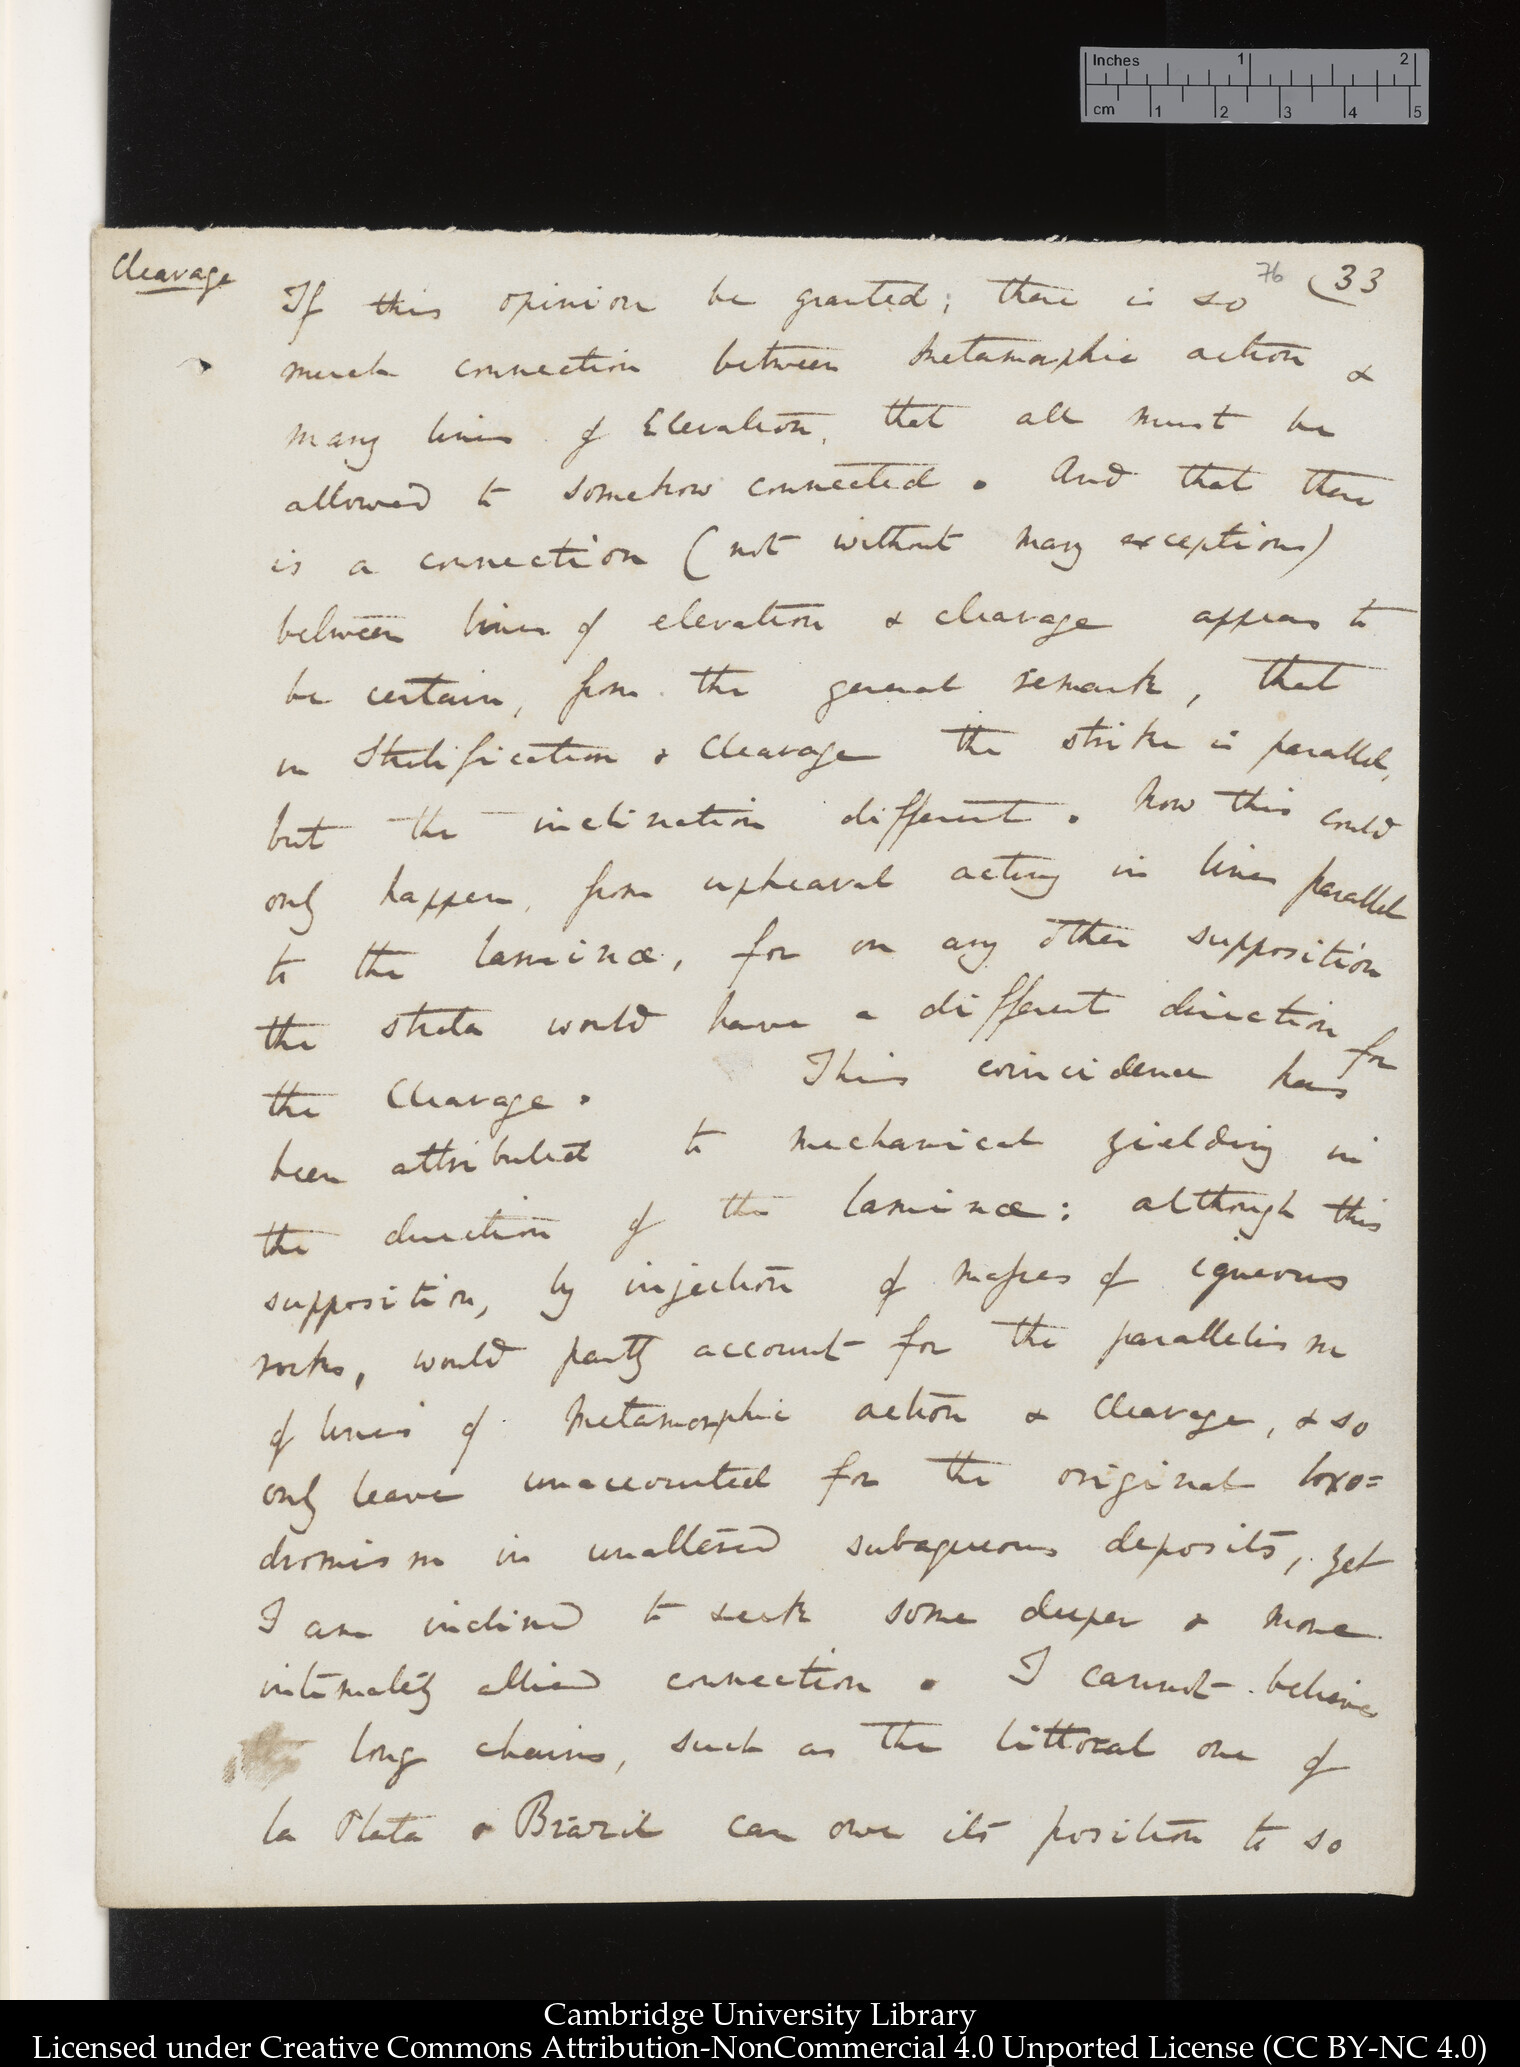 Inches 1 2
cm 1 2 3 4 5
Cleavage
76 (33
If this opinion be granted; there is so
much connection between metamorphic action &
many lines of Elevation, that all must be
allowed to somehow connected. And that there
is a connection (not without many exceptions)
between lines of elevation & cleavage appears to
be certain, from the general remark, that
in Stratification & Cleavage the strike is parallel,
but the inclination different. Now this could
only happen, from upheaval acting in lines parallel
to the laminæ, for on any other supposition
the strata would have a different direction for
the Cleavage. This coincidence has
been attributed to mechanical yielding in
the direction of the laminæ: although this
supposition, by injection of masses of igneous
rocks, would partly account for the parallelism
of lines of metamorphic action & Cleavage, & so
only leave unaccounted for the original loxo=
dromism in unaltered subaqueous deposits, yet
I am inclined to seek some deeper & more
intimately allied connection. I cannot believe
long chains, such as the littoral one of
la Plata & Brazil can owe its position to so
Cambridge University Library
Licensed under Creative Commons Attribution-NonCommercial 4.0 Unported License (CC BY-NC 4.0)